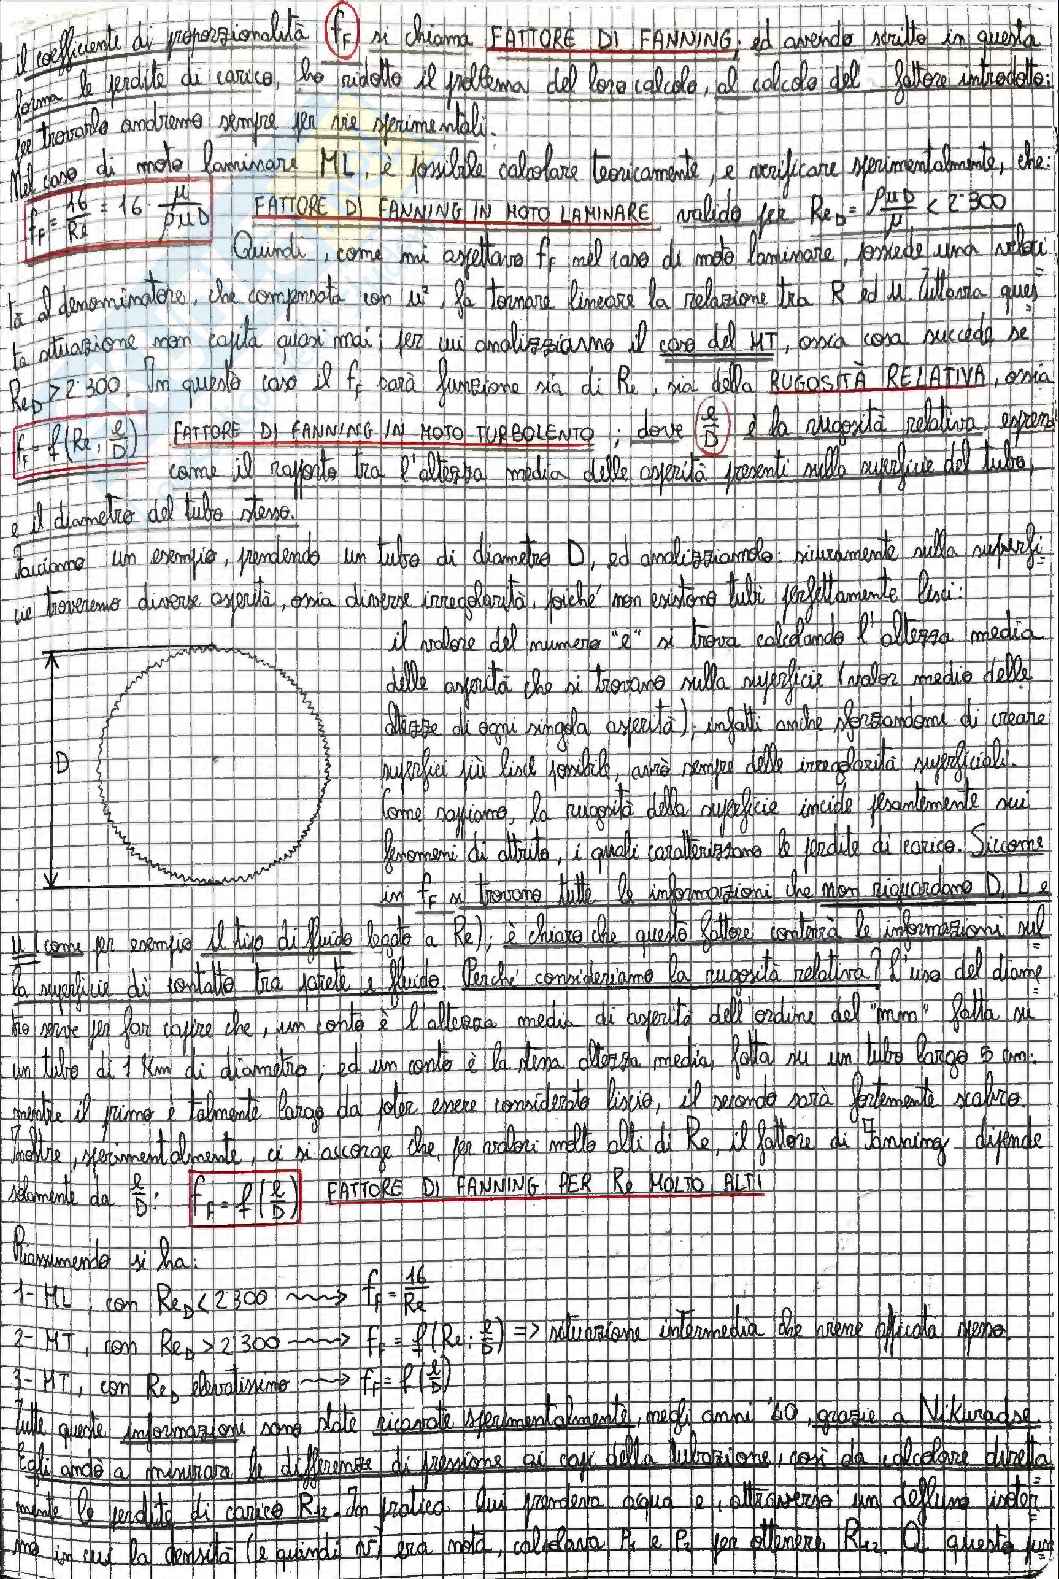 il coefficiente di proporzionalità f_F si chiama FATTORE DI FANNING; ed avendo scritto in questa
forma le perdite di carico, ho ridotto il problema del loro calcolo, al calcolo del fattore introdotto:
per trovarlo andremo sempre per vie sperimentali.
Nel caso di moto laminare ML, è possibile calcolare teoricamente, e verificare sperimentalmente, che:
f_F = 16/Re = 16 · μ/ρuD FATTORE DI FANNING IN MOTO LAMINARE valido per Re_D = ρuD/μ < 2300
Quindi, come mi aspettavo f_F nel caso di moto laminare, possiede una veloci
tà al denominatore, che compensata con u², fa tornare lineare la relazione tra R ed u. Tuttavia ques
ta situazione non capita quasi mai; per cui analizziamo il caso del MT, ossia cosa succede se
Re_D > 2300. In questo caso il f_F sarà funzione sia di Re, sia della RUGOSITÀ RELATIVA, ossia
f_F = f(Re; e/D) FATTORE DI FANNING IN MOTO TURBOLENTO; dove e/D è la rugosità relativa, espressa
come il rapporto tra l'altezza media delle asperità presenti sulla superficie del tubo,
e il diametro del tubo stesso.
Facciamo un esempio, prendendo un tubo di diametro D, ed analizziamolo: sicuramente sulla superfi
cie troveremo diverse asperità, ossia diverse irregolarità, poiché non esistono tubi perfettamente lisci:
il valore del numero "e" si trova calcolando l'altezza media
delle asperità che si trovano sulla superficie (valor medio delle
altezze di ogni singola asperità); infatti anche sforzandomi di creare
D superfici più lisce possibile, avrò sempre delle irregolarità superficiali.
Come sappiamo, la rugosità della superficie incide pesantemente sui
fenomeni di attrito, i quali caratterizzano le perdite di carico. Siccome
in f_F si trovano tutte le informazioni che non riguardano D, L e
u (come per esempio il tipo di fluido legato a Re); è chiaro che questo fattore conterrà le informazioni sul
la superficie di contatto tra parete e fluido. Perché consideriamo la rugosità relativa? L'uso del diame
tro serve per far capire che, un conto è l'altezza media di asperità dell'ordine del "mm" fatta su
un tubo di 1 Km di diametro; ed un conto è la stessa altezza media, fatta su un tubo largo 5 cm:
mentre il primo è talmente largo da poter essere considerato liscio, il secondo sarà fortemente scabro.
Inoltre, sperimentalmente, ci si accorge che, per valori molto alti di Re, il fattore di Fanning dipende
solamente da e/D: f_F = f(e/D) FATTORE DI FANNING PER Re MOLTO ALTI
Riassumendo si ha:
1- ML, con Re_D < 2300 ⟿ f_F = 16/Re
2- MT, con Re_D > 2300 ⟿ f_F = f(Re; e/D) => situazione intermedia che viene spesso.
3- MT, con Re_D elevatissimo ⟿ f_F = f(e/D)
Tutte queste informazioni sono state ricavate sperimentalmente, negli anni '40, grazie a Nikuradse.
Egli andò a misurare le differenze di pressione ai capi della tubazione, così da calcolare diretta
mente le perdite di carico R₁₂. In pratica lui prendeva acqua e, attraverso un deflusso isoter
mo in cui la densità (e quindi v) era nota, calcolava P₁ e P₂ per ottenere R₁₂. A questo pun